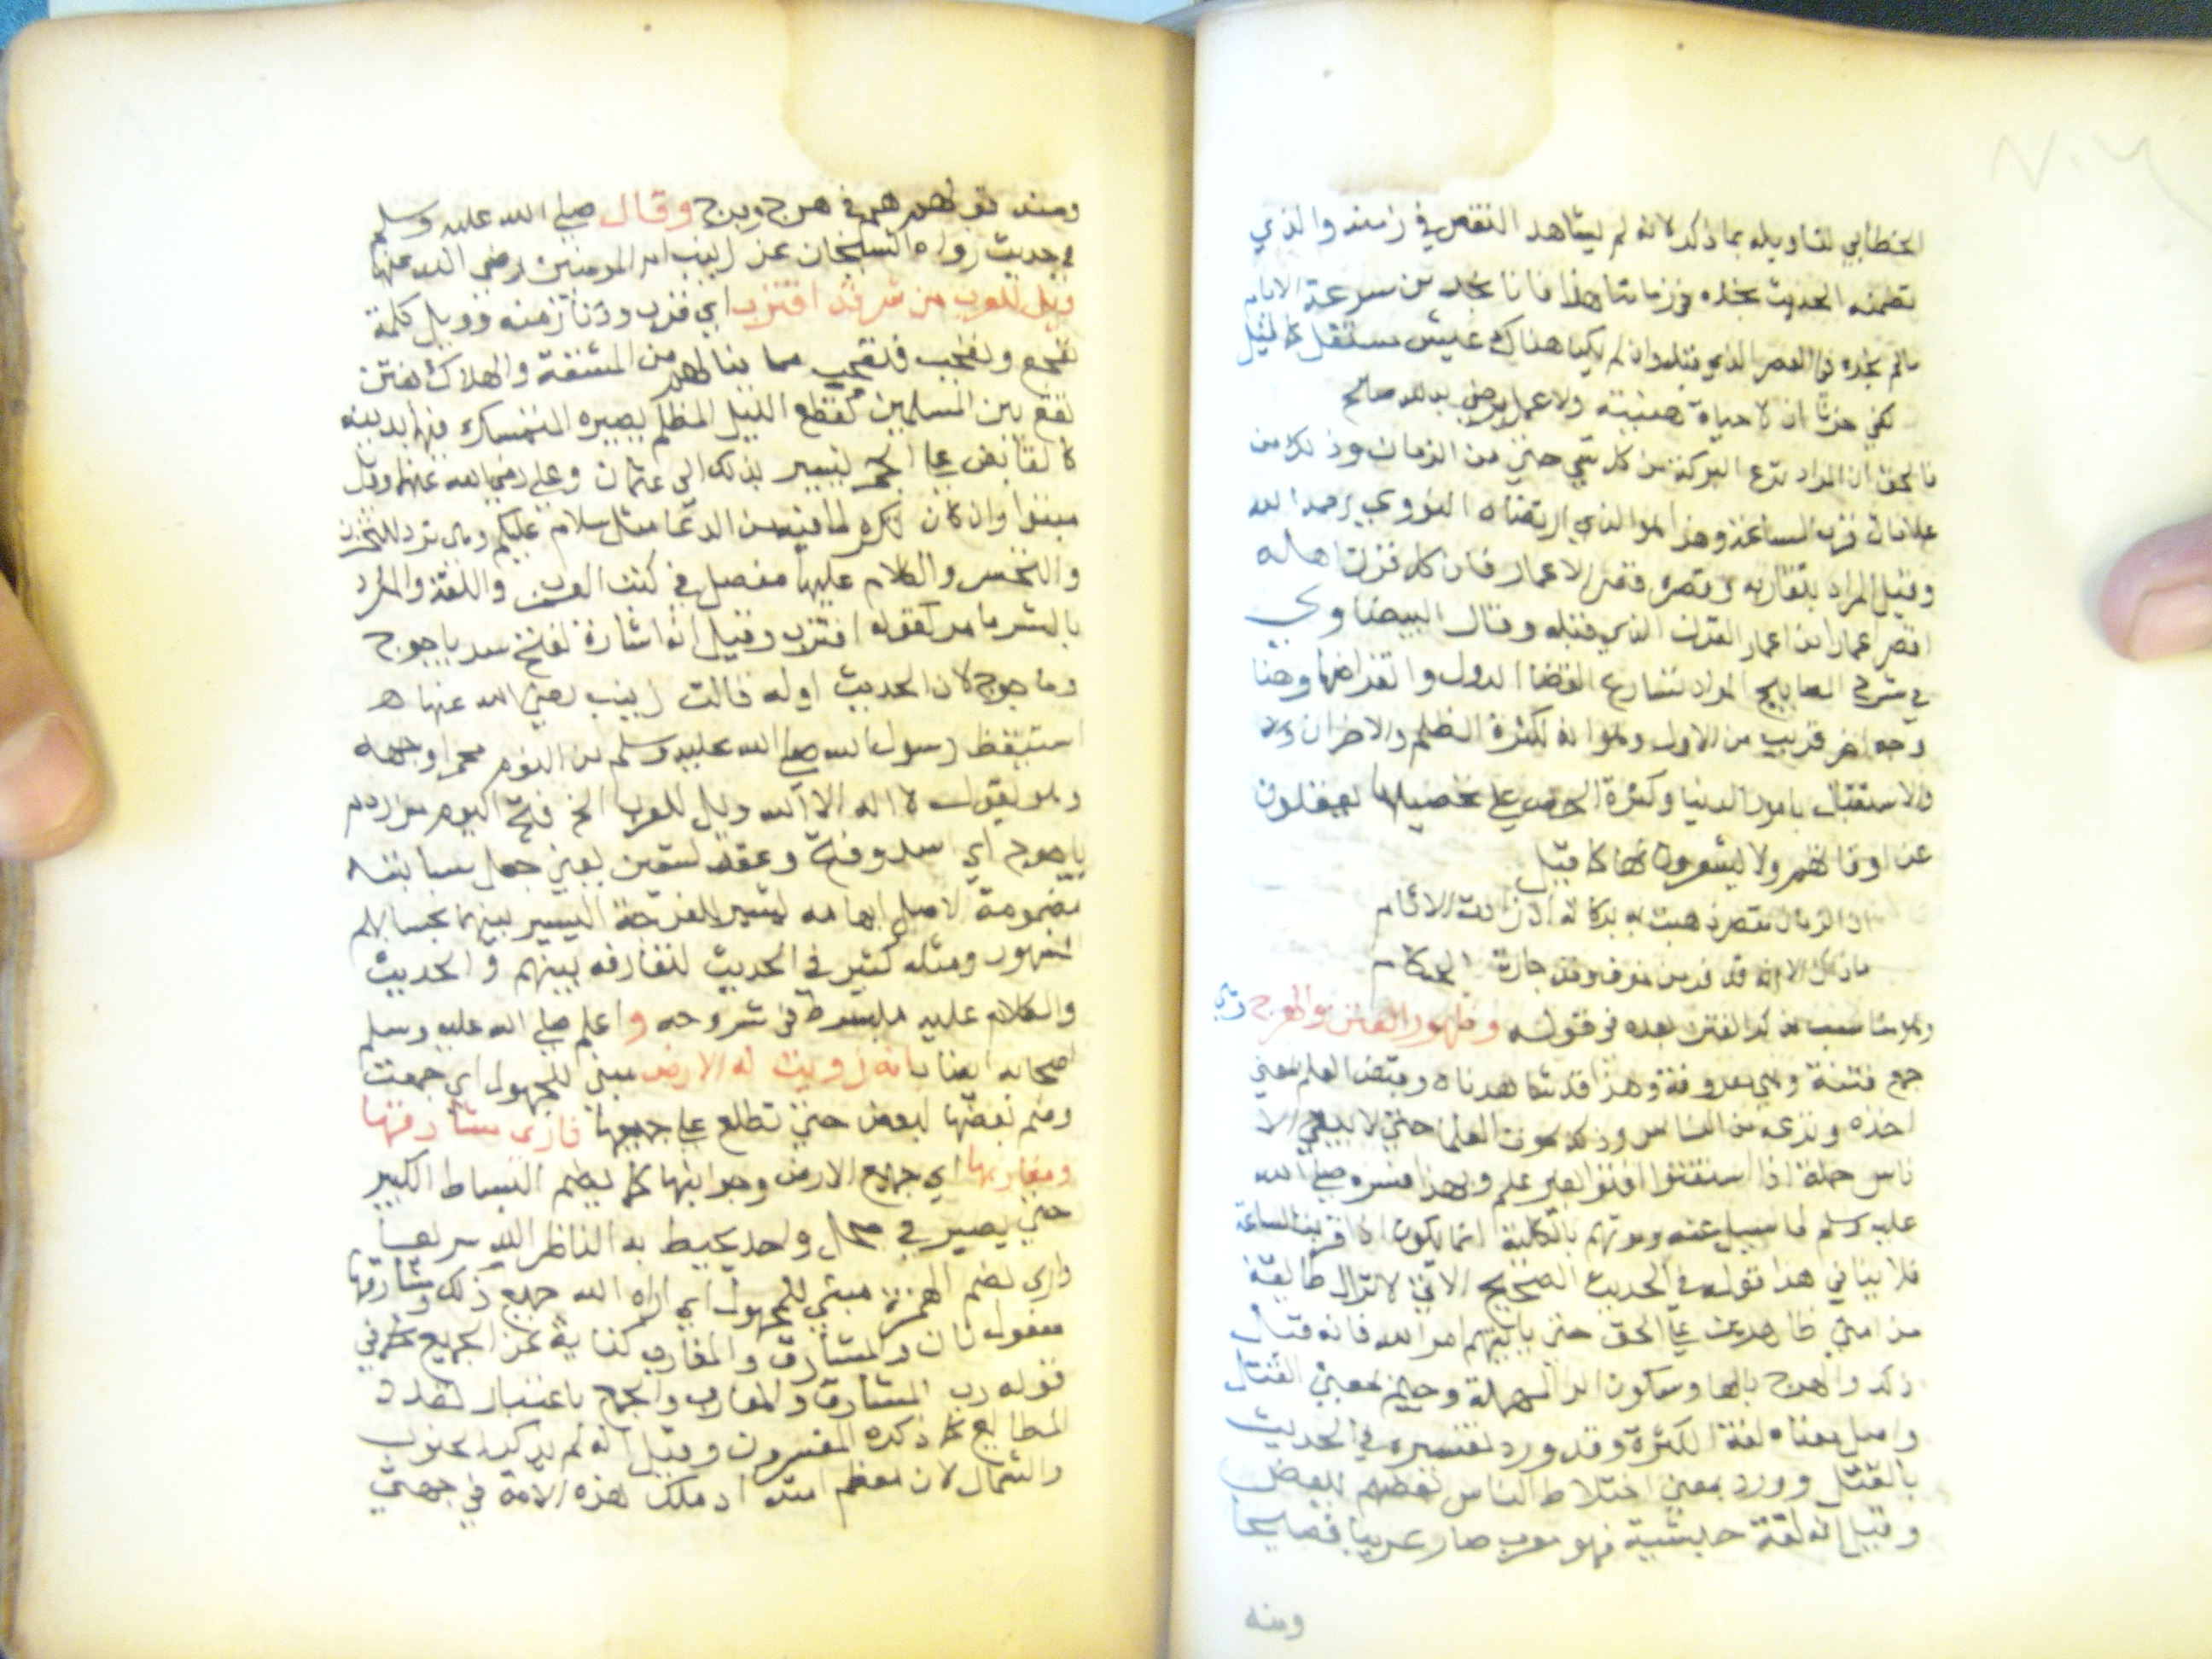 الخطابي لتاويله بما ذكر لانه لم يشاهد النقص في زمنه والذي
تضمنه الحديث نجده في زماننا هذا فانا نجد من سرعة الايام
مالم نجده في العصر الذي قبله وان لم يكن هناك عيش مستقل كما قيل
كفي حزنا ان لا حياة هنيئة ولا عمل يرضي به الله صالح
فالحق ان المراد نزع البركة من كل شي حتي من الزمان وذلك من
علامات قرب الساعة وهذا هو الذي ارتضاه النووي رحمه الله
وقيل المراد بتقاربه وقصره قصر الاعمار فان كل قرن اهله
اقصر اعمارا من اعمار القرن الذي قبله وقال البيضاوي
في شرح المصابيح المراد تسارع انقضا الدول وانقراضها وهنا
وجه اخر قريب من الاول وهو انه لكثرة الظلم والاحزان
والاستقبال بامور الدنيا وكثرة الحرص علي تحصيلها يغفلون
عن اوقاتهم ولا يشعرون بها كما قيل
ان الزمان تقصر ذهبت به بركاته اذ زادت الاثام
ما ذاك الا انه قد فر من خوف وقد جارت الحكام
وظهور الفتن والهرج
جمع فتنة وهي معروفة وهذا قد شاهدناه وقبض العلم بمعني
اخذه ونزعه من الناس وذلك بموت العلما حتي لا يبقي الا
ناس جهلة اذا استفتوا افتوا بغير علم وبهذا فسره صلي الله
عليه وسلم لما سيل عنه وموتهم بالكلية انما يكون اذا قربت الساعة
فلا ينافي هذا قوله في الحديث الصحيح الاتي لا تزال طايفة
من امتي ظاهرين علي الحق حتي ياتيهم امر الله فانه قبل
ذلك والهرج بالها وسكون الرا المهملة وجيم بمعني القتل
واصل معناه لغة الكثرة وقد ورد تفسيره في الحديث
بالقتل وورد بمعني اختلاط الناس بعضهم ببعض
وقيل انه لغة حبشية فهو معرب صار عربيا فصيحا
ومنه
ومنه قولهم هم في هرج ومرج وقال صلي الله عليه وسلم
في حديث رواه الشيخان عن زينب ام المومنين رضي الله عنها
ويل للعرب من شر قد اقترب اي قرب ودنا زمنه وويل كلمة
تفجع وتعجب فتعجب مما ينالهم من المشقة والهلاك بفتن
تقع بين المسلمين كقطع الليل المظلم يصير المتمسك فيها بدينه
كالقابض علي الجمر ليشير بذلك الي عثمان وعلي رضي الله عنهما وويل
مبتدا وان كان نكرة لما فيه من الدعا مثل سلام عليكم وهي ترد للتحزن
والتحسر والكلام عليها مفصل في كتب العربية واللغة والمراد
بالشر ما مر كقوله اقترب وقيل انه اشارة لفتح سد ياجوج
وماجوج لان الحديث اوله قالت زينب رضي الله عنها
استيقظ رسول الله صلي الله عليه وسلم من النوم محمرا وجهه
وهو يقول لا اله الا الله ويل للعرب الخ فتح اليوم من ردم
ياجوج اي سد وفتح وعقد تسعين يعني جعل سبابته
مضمومة لاصل ابهامه ليشير للفرجة اليسير بينهما بحساب لهم
مشهور ومثله كثير في الحديث لتعارفه بينهم والحديث
والكلام عليه مبسوط في شروحه واعلم صلي الله عليه وسلم
اصحابه ايضا بانه زويت له الارض مبني للمجهول اي جمعت
وضم بعضها لبعض حتي تطلع علي جميعها فاري مشارقها
ومغاربها اي جميع الارض وجوانبها كما يضم البساط الكبير
حتي يصير في محل واحد يحيط به الناظر اليه سريعا
واري بضم الهمزة مبني للمجهول اي اراه الله جميع ذلك ومشارقها
مفعول ثان والمشارق والمغارب كناية عن الجميع كما في
قوله رب المشارق والمغارب والجمع باعتبار تعدد
المطالع كما ذكره المفسرون وقيل انه لم يذكر الجنوب
والشمال لان معظم امتداد ملك هذه الامة في جهتي